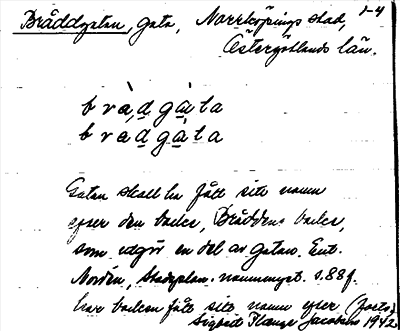 1-4
Bråddgatan, gata, Norrköpings stad,
Östergötlands län.
bràdgàta
bradgàta
Gatan skall ha fått sitt namn
efter den backe, Bråddens backe,
som utgör en del av gatan. Enl.
Nordén, Stadsplan. namnmyst. s. 88 f.
har backen fått sitt namn efter (forts.)
Sigbrit Plange Jacobson 1942